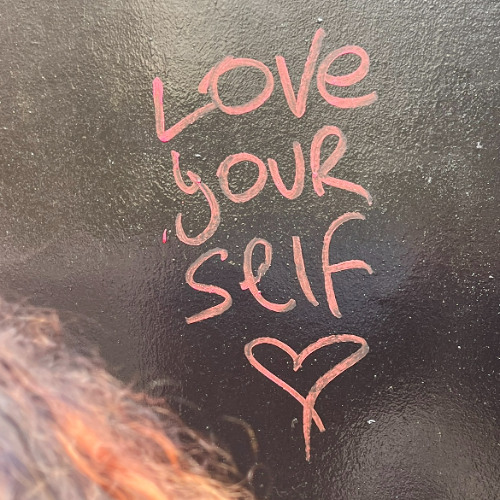 LOVe
youR
self